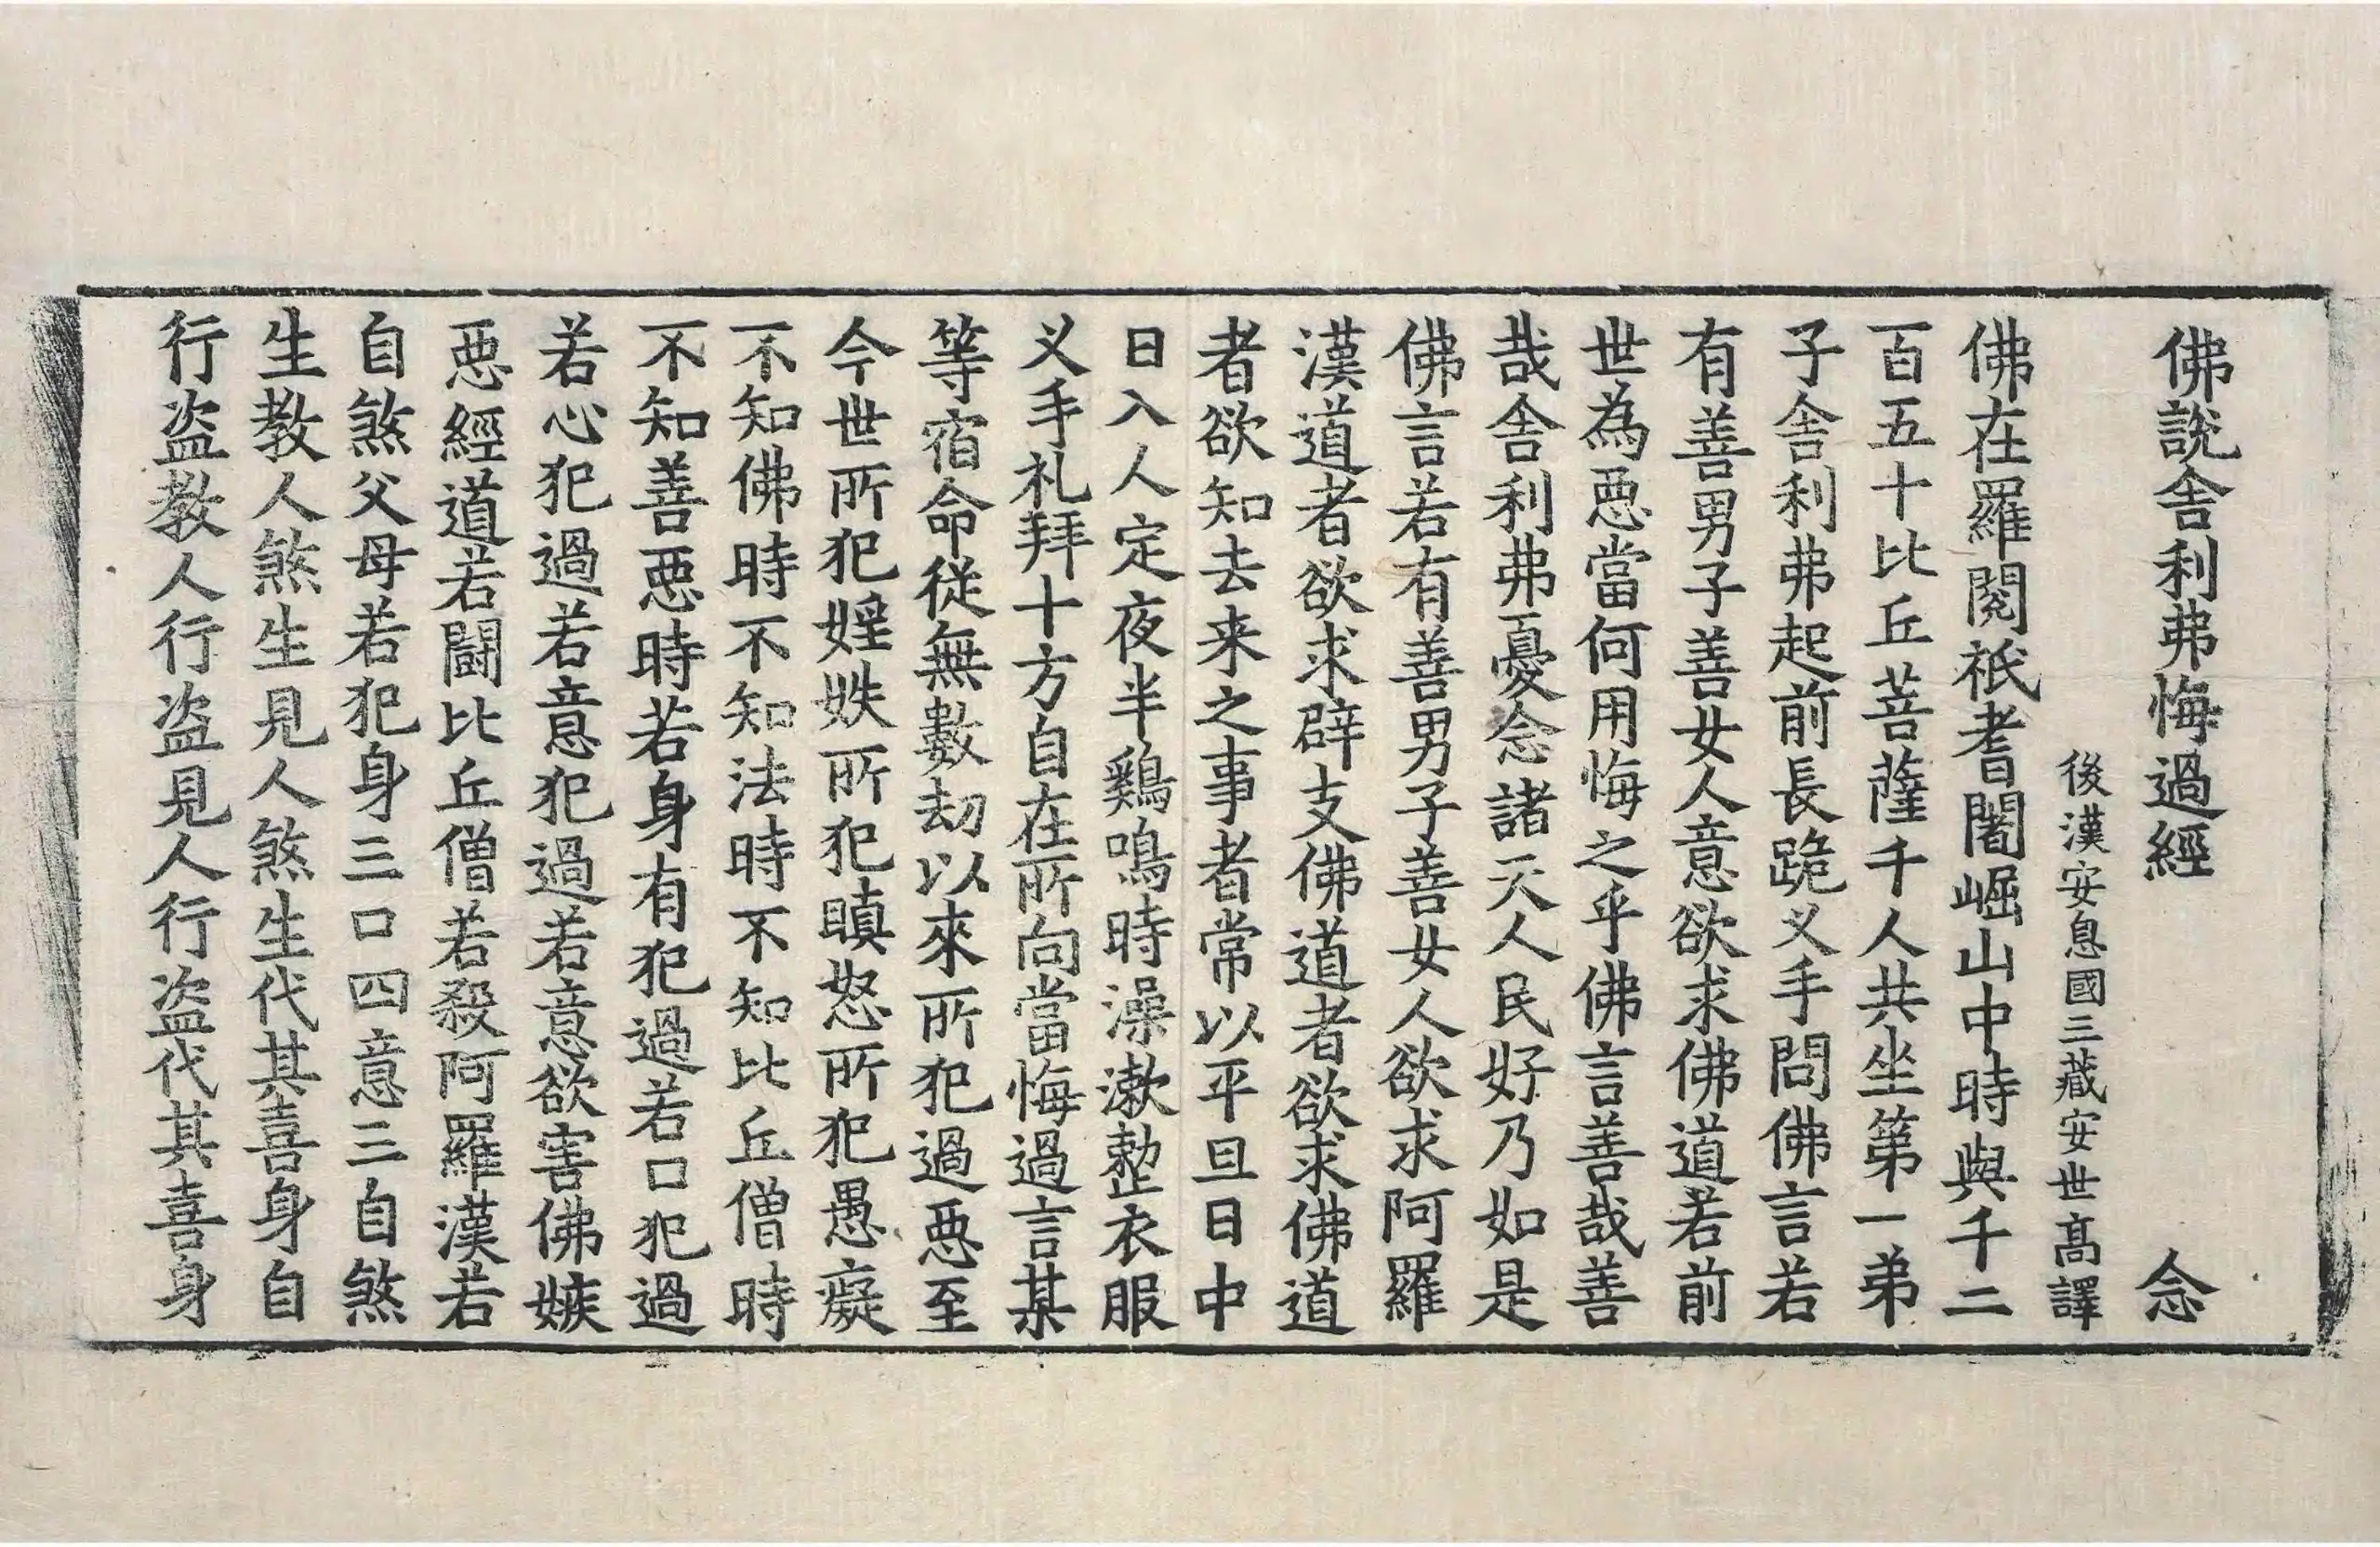 佛說舍利弗悔過經 念
後漢安息國三藏安世高譯
佛在羅閱祇耆闍崛山中時與千二
百五十比丘菩薩千人共坐第一弟
子舍利弗起前長跪叉手問佛言若
有善男子善女人意欲求佛道若前
世為惡當何用悔之乎佛言善哉善
哉舍利弗憂念諸天人民好乃如是
佛言若有善男子善女人欲求阿羅
漢道者欲求辟支佛道者欲求佛道
者欲知去来之事者常以平旦日中
日入人定夜半鷄鳴時澡漱整衣服
叉手礼拜十方自在所向當悔過言某
等宿命從無數劫以來所犯過惡至
今世所犯婬妷所犯瞋怒所犯愚癡
不知佛時不知法時不知比丘僧時
不知善惡時若身有犯過若口犯過
若心犯過若意犯過若意欲害佛嫉
惡經道若鬪比丘僧若殺阿羅漢若
自煞父母若犯身三口四意三自煞
生教人煞生見人煞生代其喜身自
行盗教人行盗見人行盗代其喜身